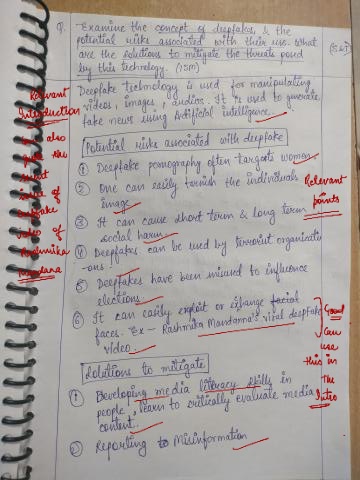 Q. Examine the concept of deepfakes & the
potential risks associated with their use. What
are the solutions to mitigate the threats posed
by this technology (15M)
(S&T)
Deepfake technology is used for manipulating
videos, images, audios. It is used to generate
fake news using Artificial intelligence.
Relevant
Introduction
also
give the
recent
of
deepfake
video of
Rashmika
Mandana
Potential risks associated with deepfake
① Deepfake pornography often targets women
② One can easily tarnish the individuals
image
③ It can cause short term & long term
social harm
④ Deepfakes can be used by terrorist organisati
-ons.
⑤ Deepfakes have been misused to influence
elections.
⑥ It can easily exploit or exhange facial
faces. Ex - Rashmika Mandanna's viral deepfake
video.
Relevant
points
Good
Can
use
this in
the
Intro
Solutions to mitigate
① Developing media literacy skills in
people, learn to critically evaluate media
content.
② Reporting to Misinformation